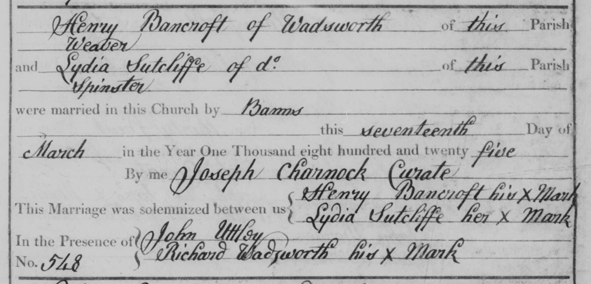 Henry Bancroft of Wadsworth of this Parish
Weaver
and Lydia Sutcliffe of do. of this Parish
Spinster
were married in this Church by Banns
this seventeenth Day of
March in the Year One Thousand eight hundred and twenty five
By me Joseph Charnock Curate
This Marriage was solemnized between us { Henry Bancroft his X Mark
Lydia Sutcliffe her X Mark
In the Presence of { John Uttley
Richard Wadsworth his X Mark
No. 548